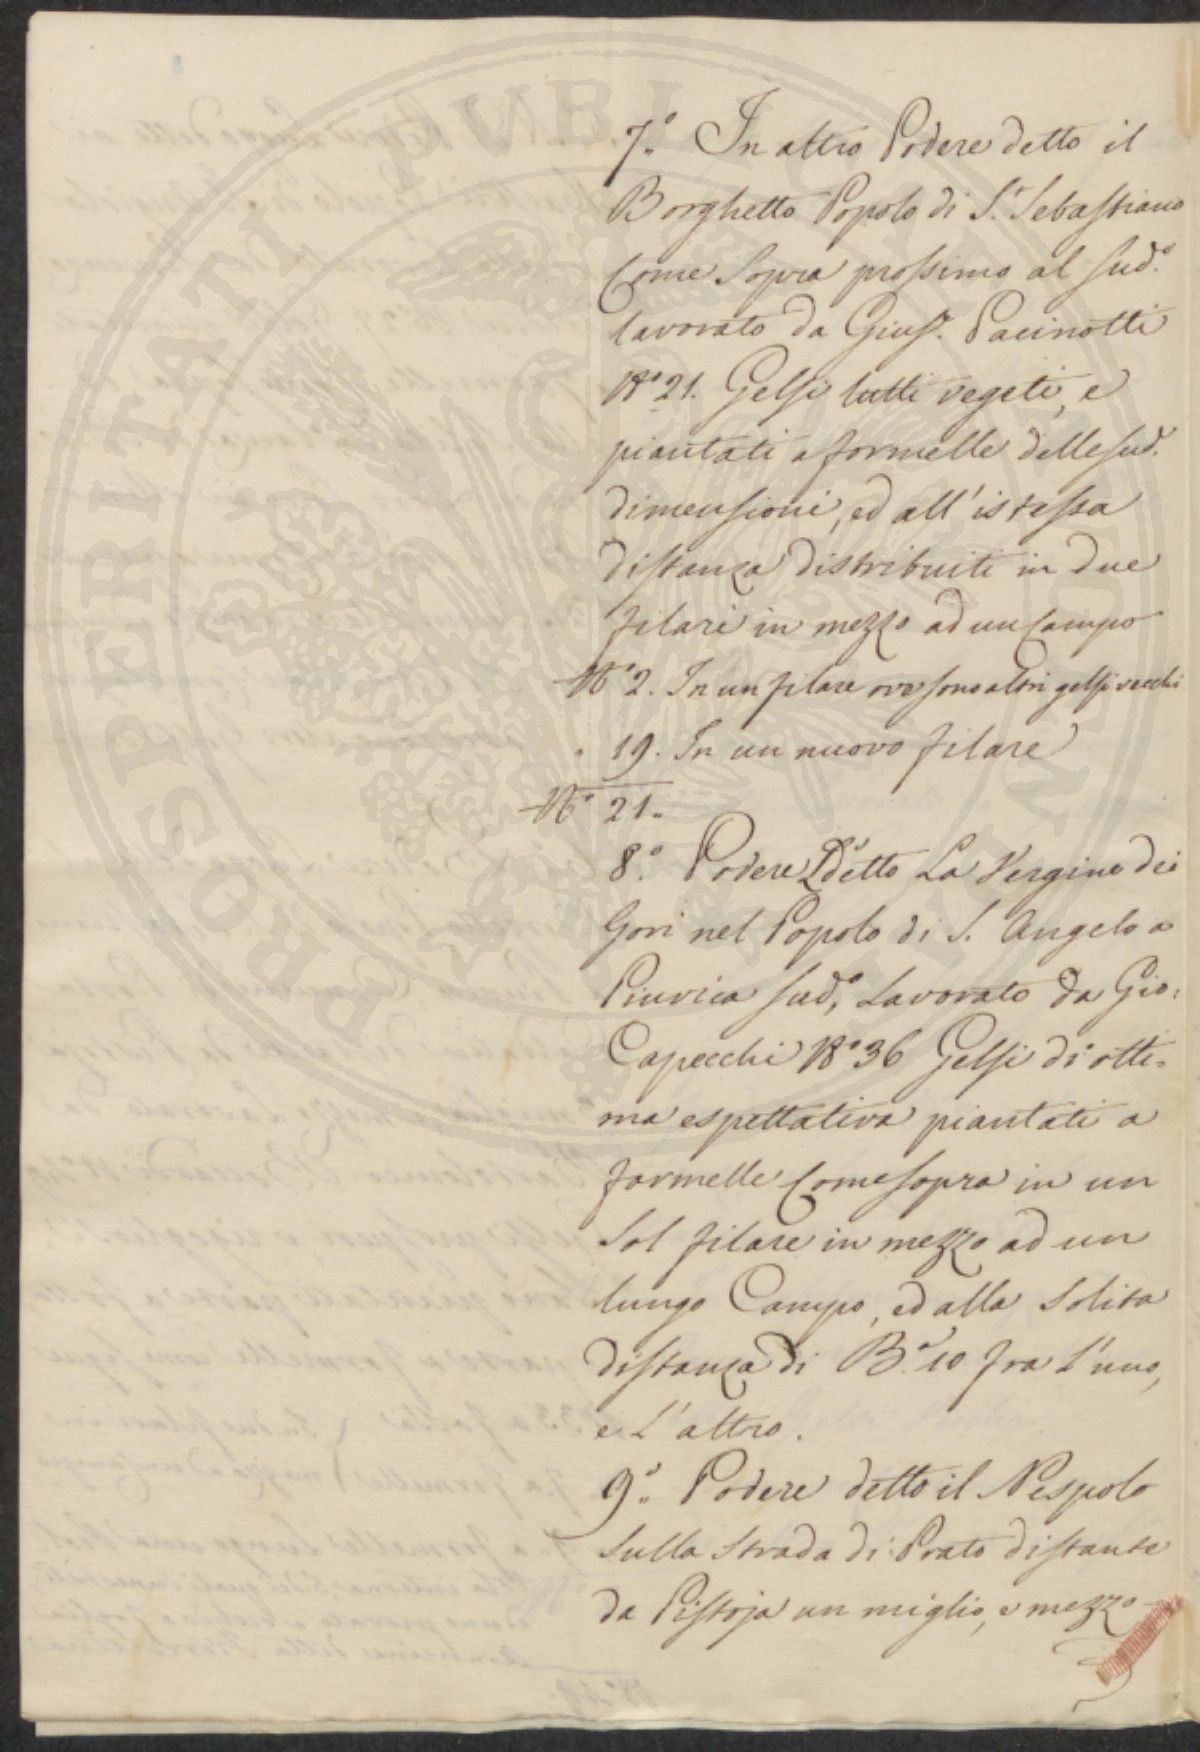 7.° In altro Podere detto il
Borghetto Popolo di S. Sebastiano
Come Sopra prossimo al sud.°
lavorato da Gius.e Pacinotti
N° 21. Gelsi tutti vegeti, e
piantati a formelle delle sud.e
dimensioni, ed all'istessa
distanza distribuiti in due
filari in mezzo ad un Campo
N° 2. In un filare ove sono altri gelsi vecchi
" 19. In un nuovo filare
N° 21.
8.° Podere detto La Vergine dei
Gori nel Popolo di S. Angelo a
Piuvica sud.°, Lavorato da Gio:
Capecchi N° 36 Gelsi di otti=
ma espettativa piantati a
formelle Come sopra in un
Sol filare in mezzo ad un
lungo Campo, ed alla Solita
distanza di B.a 10 fra l'uno,
e L'altro.
9.° Podere detto il Nespolo
Sulla Strada di Prato distante
da Pistoja un miglio, e mezzo
PROSPERITATI PUBLICAE